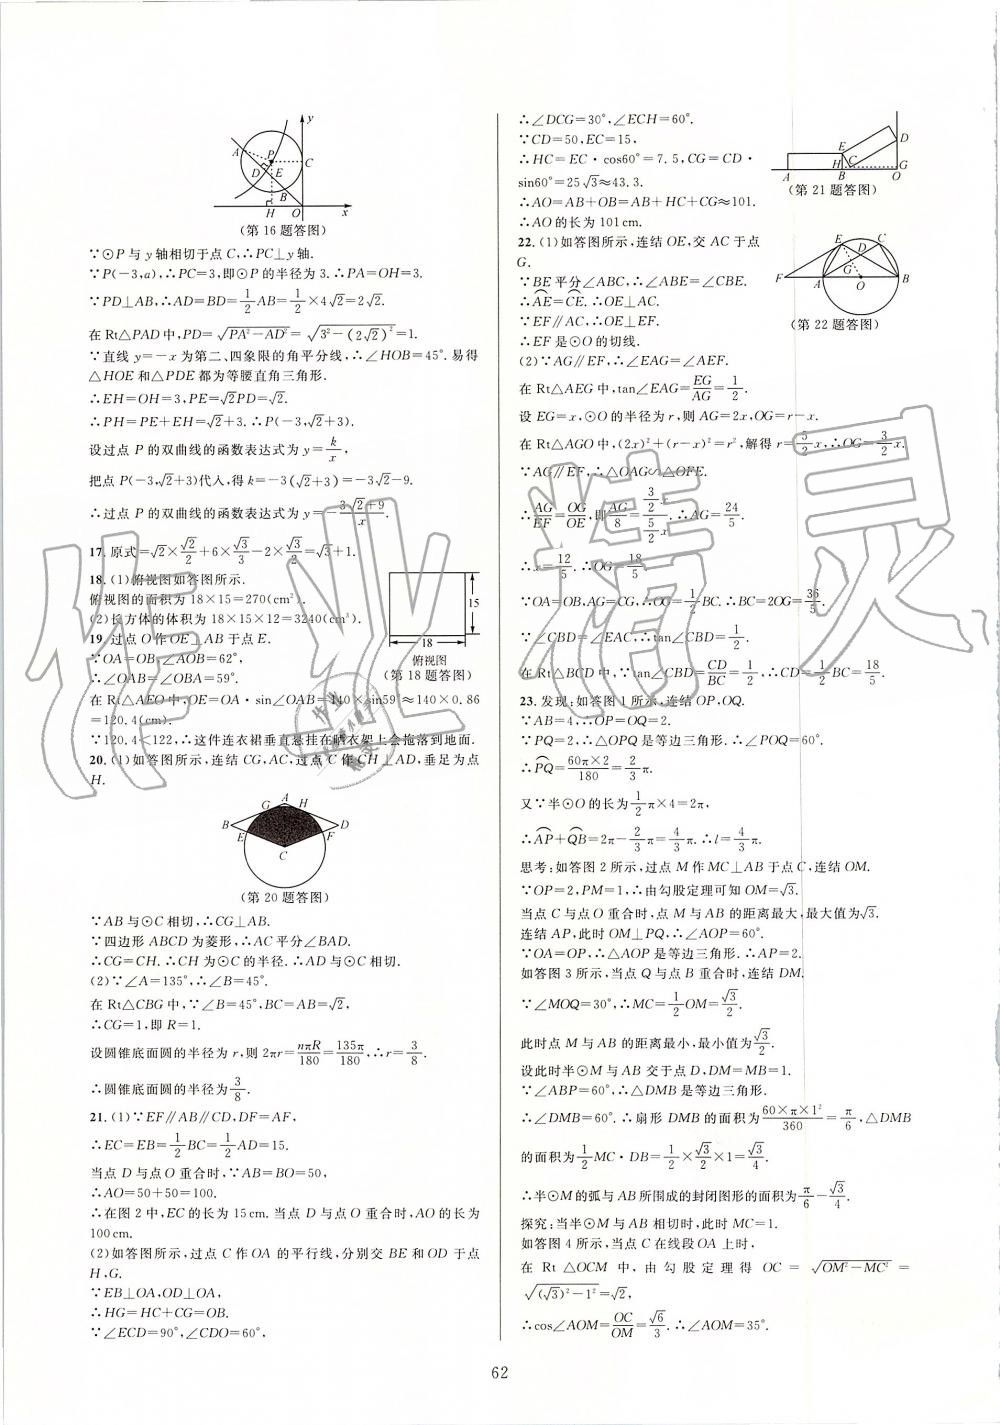 y
A
P
C
D
E
B
H
O
x
(第16题答图)
∵⊙P与y轴相切于点C,∴PC⊥y轴.
∵P(-3,a),∴PC=3,即⊙P的半径为3.∴PA=OH=3.
∵PD⊥AB,∴AD=BD=1/2AB=1/2×4√2=2√2.
在Rt△PAD中,PD=√(PA²-AD²)=√(3²-(2√2)²)=1.
∵直线y=-x为第二、四象限的角平分线,∴∠HOB=45°.易得
△HOE和△PDE都为等腰直角三角形.
∴EH=OH=3,PE=√2PD=√2.
∴PH=PE+EH=√2+3.∴P(-3,√2+3).
设过点P的双曲线的函数表达式为y=k/x,
把点P(-3,√2+3)代入,得k=-3(√2+3)=-3√2-9.
∴过点P的双曲线的函数表达式为y=-(3√2+9)/x.
17.原式=√2×√2/2+6×√3/3-2×√3/2=√3+1.
18.(1)俯视图如答图所示.
俯视图的面积为18×15=270(cm²).
(2)长方体的体积为18×15×12=3240(cm³).
15
18
俯视图
(第18题答图)
19.过点O作OE⊥AB于点E.
∵OA=OB,∠AOB=62°,
∴∠OAB=∠OBA=59°.
在Rt△AEO中,OE=OA·sin∠OAB=140×sin59°≈140×0.86
=120.4(cm).
∵120.4<122,∴这件连衣裙垂直悬挂在晒衣架上会拖落到地面.
20.(1)如答图所示,连结CG,AC,过点C作CH⊥AD,垂足为点
H.
G A H
B E F D
C
(第20题答图)
∵AB与⊙C相切,∴CG⊥AB.
∵四边形ABCD为菱形,∴AC平分∠BAD.
∴CG=CH.∴CH为⊙C的半径.∴AD与⊙C相切.
(2)∵∠A=135°,∴∠B=45°.
在Rt△CBG中,∵∠B=45°,BC=AB=√2,
∴CG=1,即R=1.
设圆锥底面圆的半径为r,则2πr=nπR/180=135π/180,∴r=3/8.
∴圆锥底面圆的半径为3/8.
21.(1)∵EF∥AB∥CD,DF=AF,
∴EC=EB=1/2BC=1/2AD=15.
当点D与点O重合时,∵AB=BO=50,
∴AO=50+50=100.
∴在图2中,EC的长为15cm.当点D与点O重合时,AO的长为
100cm.
(2)如答图所示,过点C作OA的平行线,分别交BE和OD于点
H,G.
∵EB⊥OA,OD⊥OA,
∴HG=HC+CG=OB.
∵∠ECD=90°,∠CDO=60°,
∴∠DCG=30°,∠ECH=60°.
∵CD=50,EC=15,
∴HC=EC·cos60°=7.5,CG=CD·
sin60°=25√3≈43.3.
∴AO=AB+OB=AB+HC+CG≈101.
∴AO的长为101cm.
E
D
H
C
G
A
B
O
(第21题答图)
22.(1)如答图所示,连结OE,交AC于点
G.
∵BE平分∠ABC,∴∠ABE=∠CBE.
∴AE=CE.∴OE⊥AC.
∵EF∥AC,∴OE⊥EF.
∴EF是⊙O的切线.
E
C
D
G
F
A
O
B
(第22题答图)
(2)∵AG∥EF,∴∠EAG=∠AEF.
在Rt△AEG中,tan∠EAG=EG/AG=1/2.
设EG=x,⊙O的半径为r,则AG=2x,OG=r-x.
在Rt△AGO中,(2x)²+(r-x)²=r²,解得r=5/2x,∴OG=3/2x.
∵AG∥EF,∴△OAG∽△OFE.
∴AG/EF=OG/OE,即AG/8=(3/2x)/(5/2x).∴AG=24/5.
∴x=12/5.∴OG=18/5.
∵OA=OB,AG=CG,∴OG=1/2BC.∴BC=2OG=36/5.
∵∠CBD=∠EAC,∴tan∠CBD=1/2.
在Rt△BCD中,∵tan∠CBD=CD/BC=1/2,∴CD=1/2BC=18/5.
23.发现:如答图1所示,连结OP,OQ.
∵AB=4,∴OP=OQ=2.
∵PQ=2,∴△OPQ是等边三角形.∴∠POQ=60°.
∴PQ=60π×2/180=2/3π.
又∵半⊙O的长为1/2π×4=2π,
∴AP+QB=2π-2/3π=4/3π.∴l=4/3π.
思考:如答图2所示,过点M作MC⊥AB于点C,连结OM.
∵OP=2,PM=1,∴由勾股定理可知OM=√3.
当点C与点O重合时,点M与AB的距离最大,最大值为√3.
连结AP,此时OM⊥PQ,∴∠AOP=60°.
∵OA=OP,∴△AOP是等边三角形.∴AP=2.
如答图3所示,当点Q与点B重合时,连结DM.
∵∠MOQ=30°,∴MC=1/2OM=√3/2.
此时点M与AB的距离最小,最小值为√3/2.
设此时半⊙M与AB交于点D,DM=MB=1.
∵∠ABP=60°,∴△DMB是等边三角形.
∴∠DMB=60°.∴扇形DMB的面积为60×π×1²/360=π/6,△DMB
的面积为1/2MC·DB=1/2×√3/2×1=√3/4.
∴半⊙M的弧与AB所围成的封闭图形的面积为π/6-√3/4.
探究:当半⊙M与AB相切时,此时MC=1.
如答图4所示,当点C在线段OA上时,
在Rt△OCM中,由勾股定理得OC=√(OM²-MC²)=
√((√3)²-1²)=√2,
∴cos∠AOM=OC/OM=√6/3.∴∠AOM=35°.
62
作业精灵